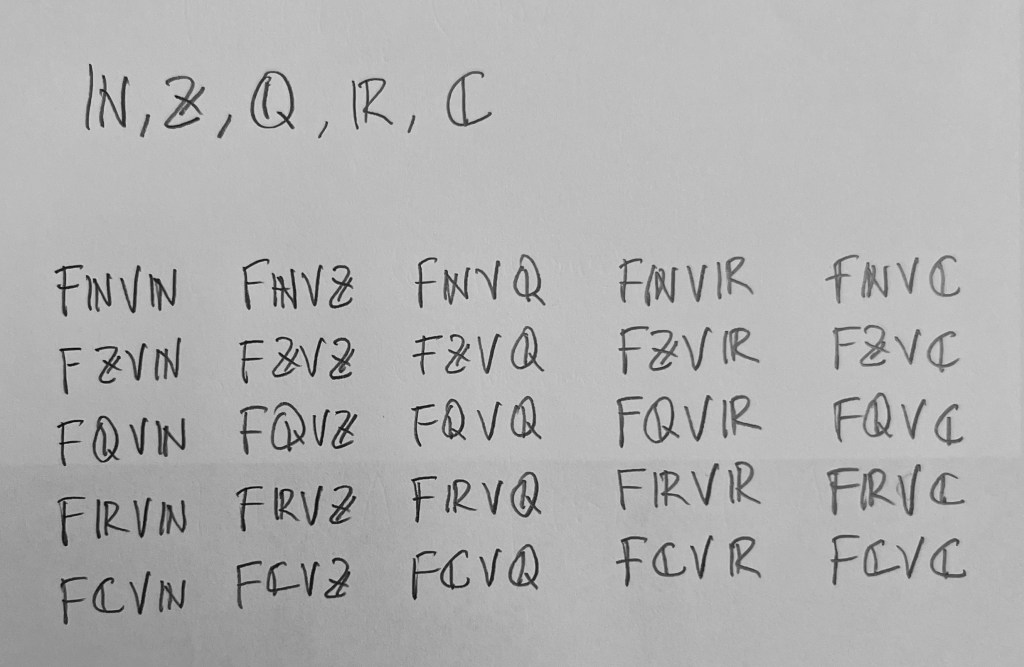 ℕ, ℤ, ℚ, ℝ, ℂ
FℕVℕ FℕVℤ FℕVℚ FℕVℝ FℕVℂ
FℤVℕ FℤVℤ FℤVℚ FℤVℝ FℤVℂ
FℚVℕ FℚVℤ FℚVℚ FℚVℝ FℚVℂ
FℝVℕ FℝVℤ FℝVℚ FℝVℝ FℝVℂ
FℂVℕ FℂVℤ FℂVℚ FℂVℝ FℂVℂ